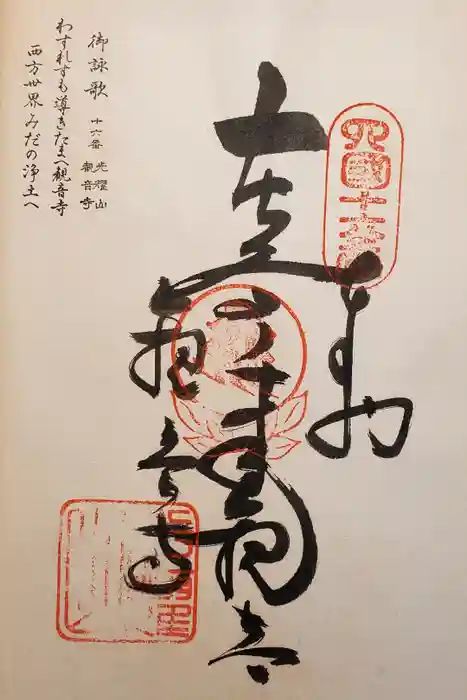 四國十六番
奉納
千手観音
観音寺
御詠歌 十六番 光耀山 觀音寺
わすれずも導きたまへ観音寺
西方世界みだの浄土へ